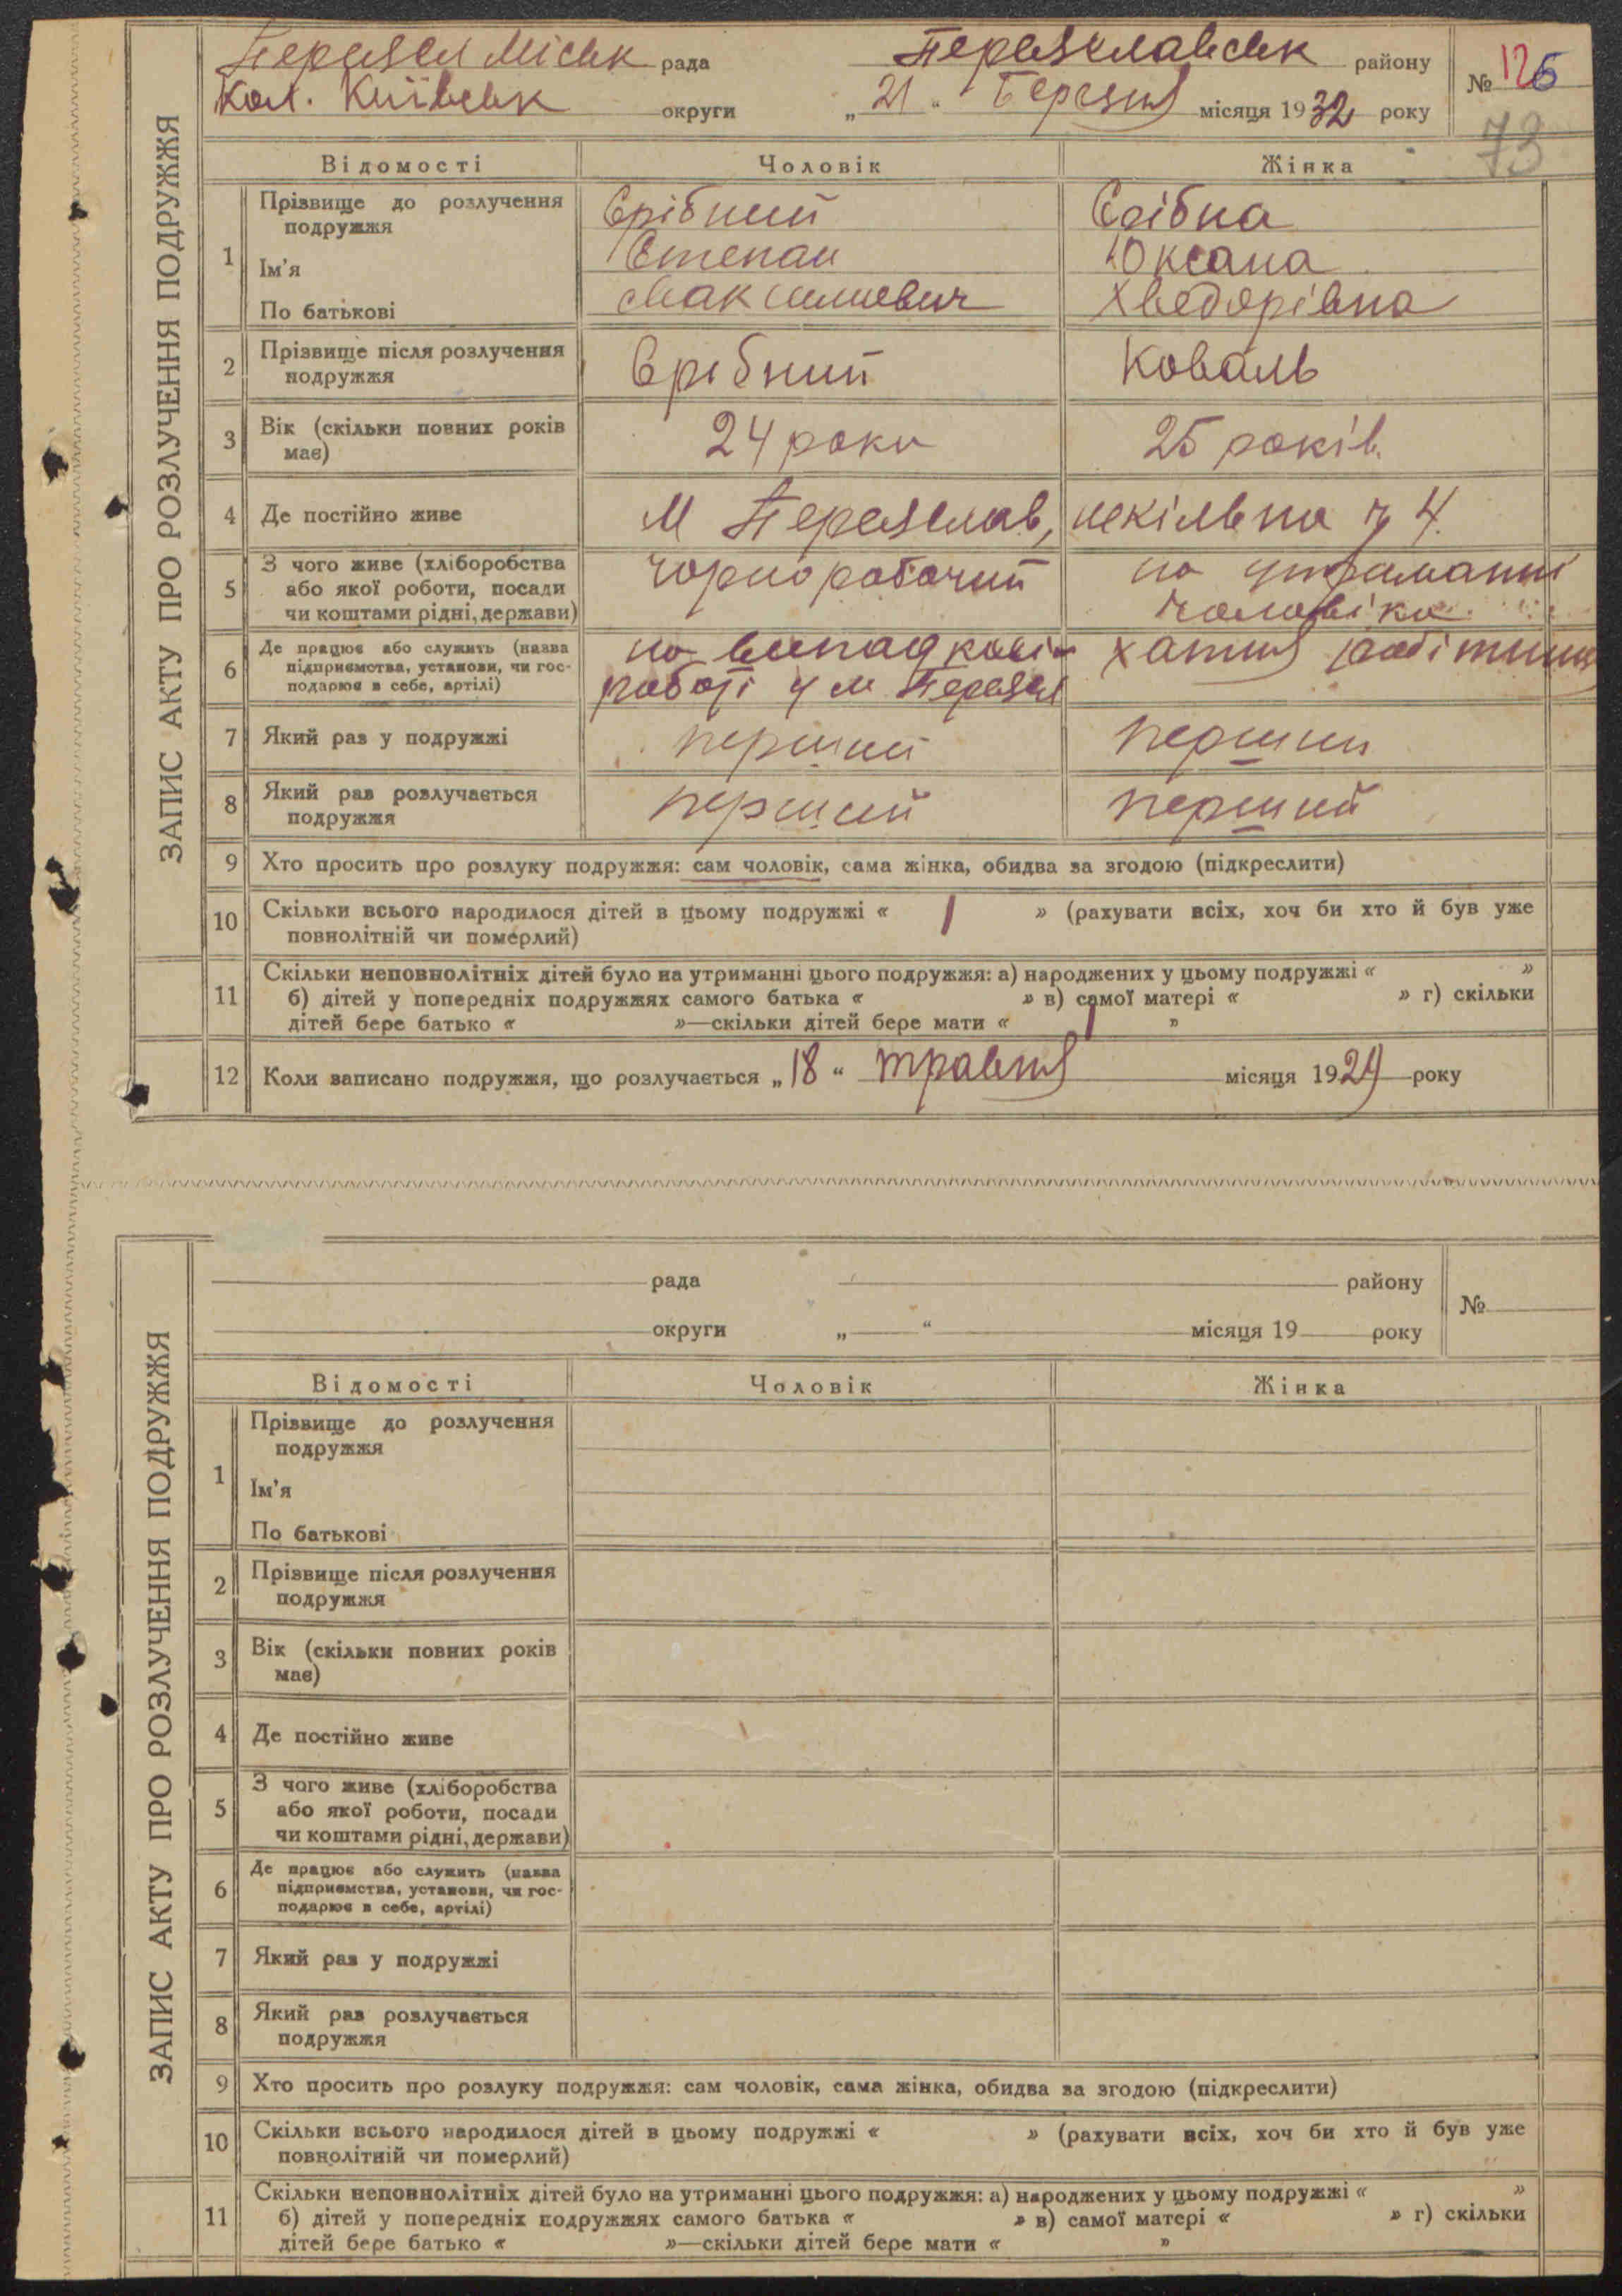 Переясл Міськ рада Переяславськ району № 126
Кол. Київськ округи „21“ Березня місяця 1932 року
73
ЗАПИС АКТУ ПРО РОЗЛУЧЕННЯ ПОДРУЖЖЯ
Відомості Чоловік Жінка
1 Прізвище до розлучення подружжя Срібний Срібна
Ім'я Степан Оксана
По батькові Максимович Хведорівна
2 Прізвище після розлучення подружжя Срібний Коваль
3 Вік (скільки повних років має) 24 роки 25 років.
4 Де постійно живе М Переяслав, ч 4.
5 З чого живе (хліборобства
або якої роботи, посади
чи коштами рідні, держави) чорноробочий на утриманні чоловіка
6 Де працює або служить (назва
підприємства, установи, чи гос-
подарює в себе, артілі) на випадковій роботі у м Переясл хатня робітниця
7 Який раз у подружжі перший перший
8 Який раз розлучається
подружжя перший перший
9 Хто просить про розлуку подружжя: сам чоловік, сама жінка, обидва за згодою (підкреслити)
10 Скільки всього народилося дітей в цьому подружжі « 1 » (рахувати всіх, хоч би хто й був уже
повнолітній чи померлий)
11 Скільки неповнолітніх дітей було на утриманні цього подружжя: а) народжених у цьому подружжі « »
б) дітей у попередніх подружжях самого батька « » в) самої матері « » г) скільки
дітей бере батько « »—скільки дітей бере мати « 1 »
12 Коли записано подружжя, що розлучається „18“ травня місяця 1929 року
рада району №
округи „ “ місяця 19 року
ЗАПИС АКТУ ПРО РОЗЛУЧЕННЯ ПОДРУЖЖЯ
Відомості Чоловік Жінка
1 Прізвище до розлучення
подружжя
Ім'я
По батькові
2 Прізвище після розлучення
подружжя
3 Вік (скільки повних років
має)
4 Де постійно живе
5 З чого живе (хліборобства
або якої роботи, посади
чи коштами рідні, держави)
6 Де працює або служить (назва
підприємства, установи, чи гос-
подарює в себе, артілі)
7 Який раз у подружжі
8 Який раз розлучається
подружжя
9 Хто просить про розлуку подружжя: сам чоловік, сама жінка, обидва за згодою (підкреслити)
10 Скільки всього народилося дітей в цьому подружжі « » (рахувати всіх, хоч би хто й був уже
повнолітній чи померлий)
11 Скільки неповнолітніх дітей було на утриманні цього подружжя: а) народжених у цьому подружжі « »
б) дітей у попередніх подружжях самого батька « » в) самої матері « » г) скільки
дітей бере батько « »—скільки дітей бере мати « »